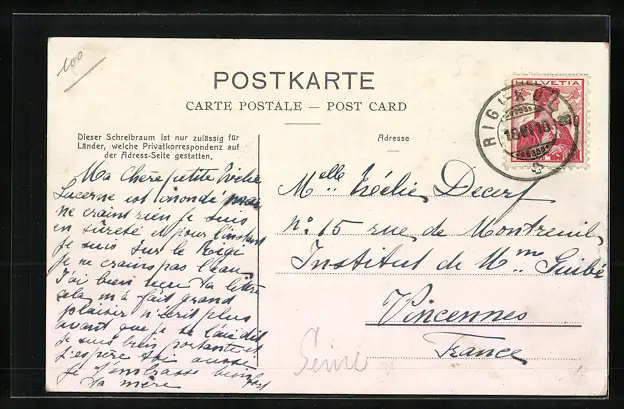 100
POSTKARTE
CARTE POSTALE — POST CARD
Dieser Schreibraum ist nur zulässig für
Länder, welche Privatkorrespondenz auf
der Adress-Seite gestatten.
Adresse
HELVETIA
RIGI
Ma Chère petite
Lucerne est inondé mais
ne crains rien je suis
en sûreté et pour l'instant
je suis sur le Rigi
je ne crains pas l'eau
J'ai bien reçu ta lettre
cela m'a fait grand
plaisir n'écrit plus
avant que je te l'ai dit
je suis bien portante et
j'espère toi aussi
je t'embrasse bien fort
ta mère
Melle Decerf
No 15 rue de Montreuil
Institut de Mme
Vincennes
France
Seine